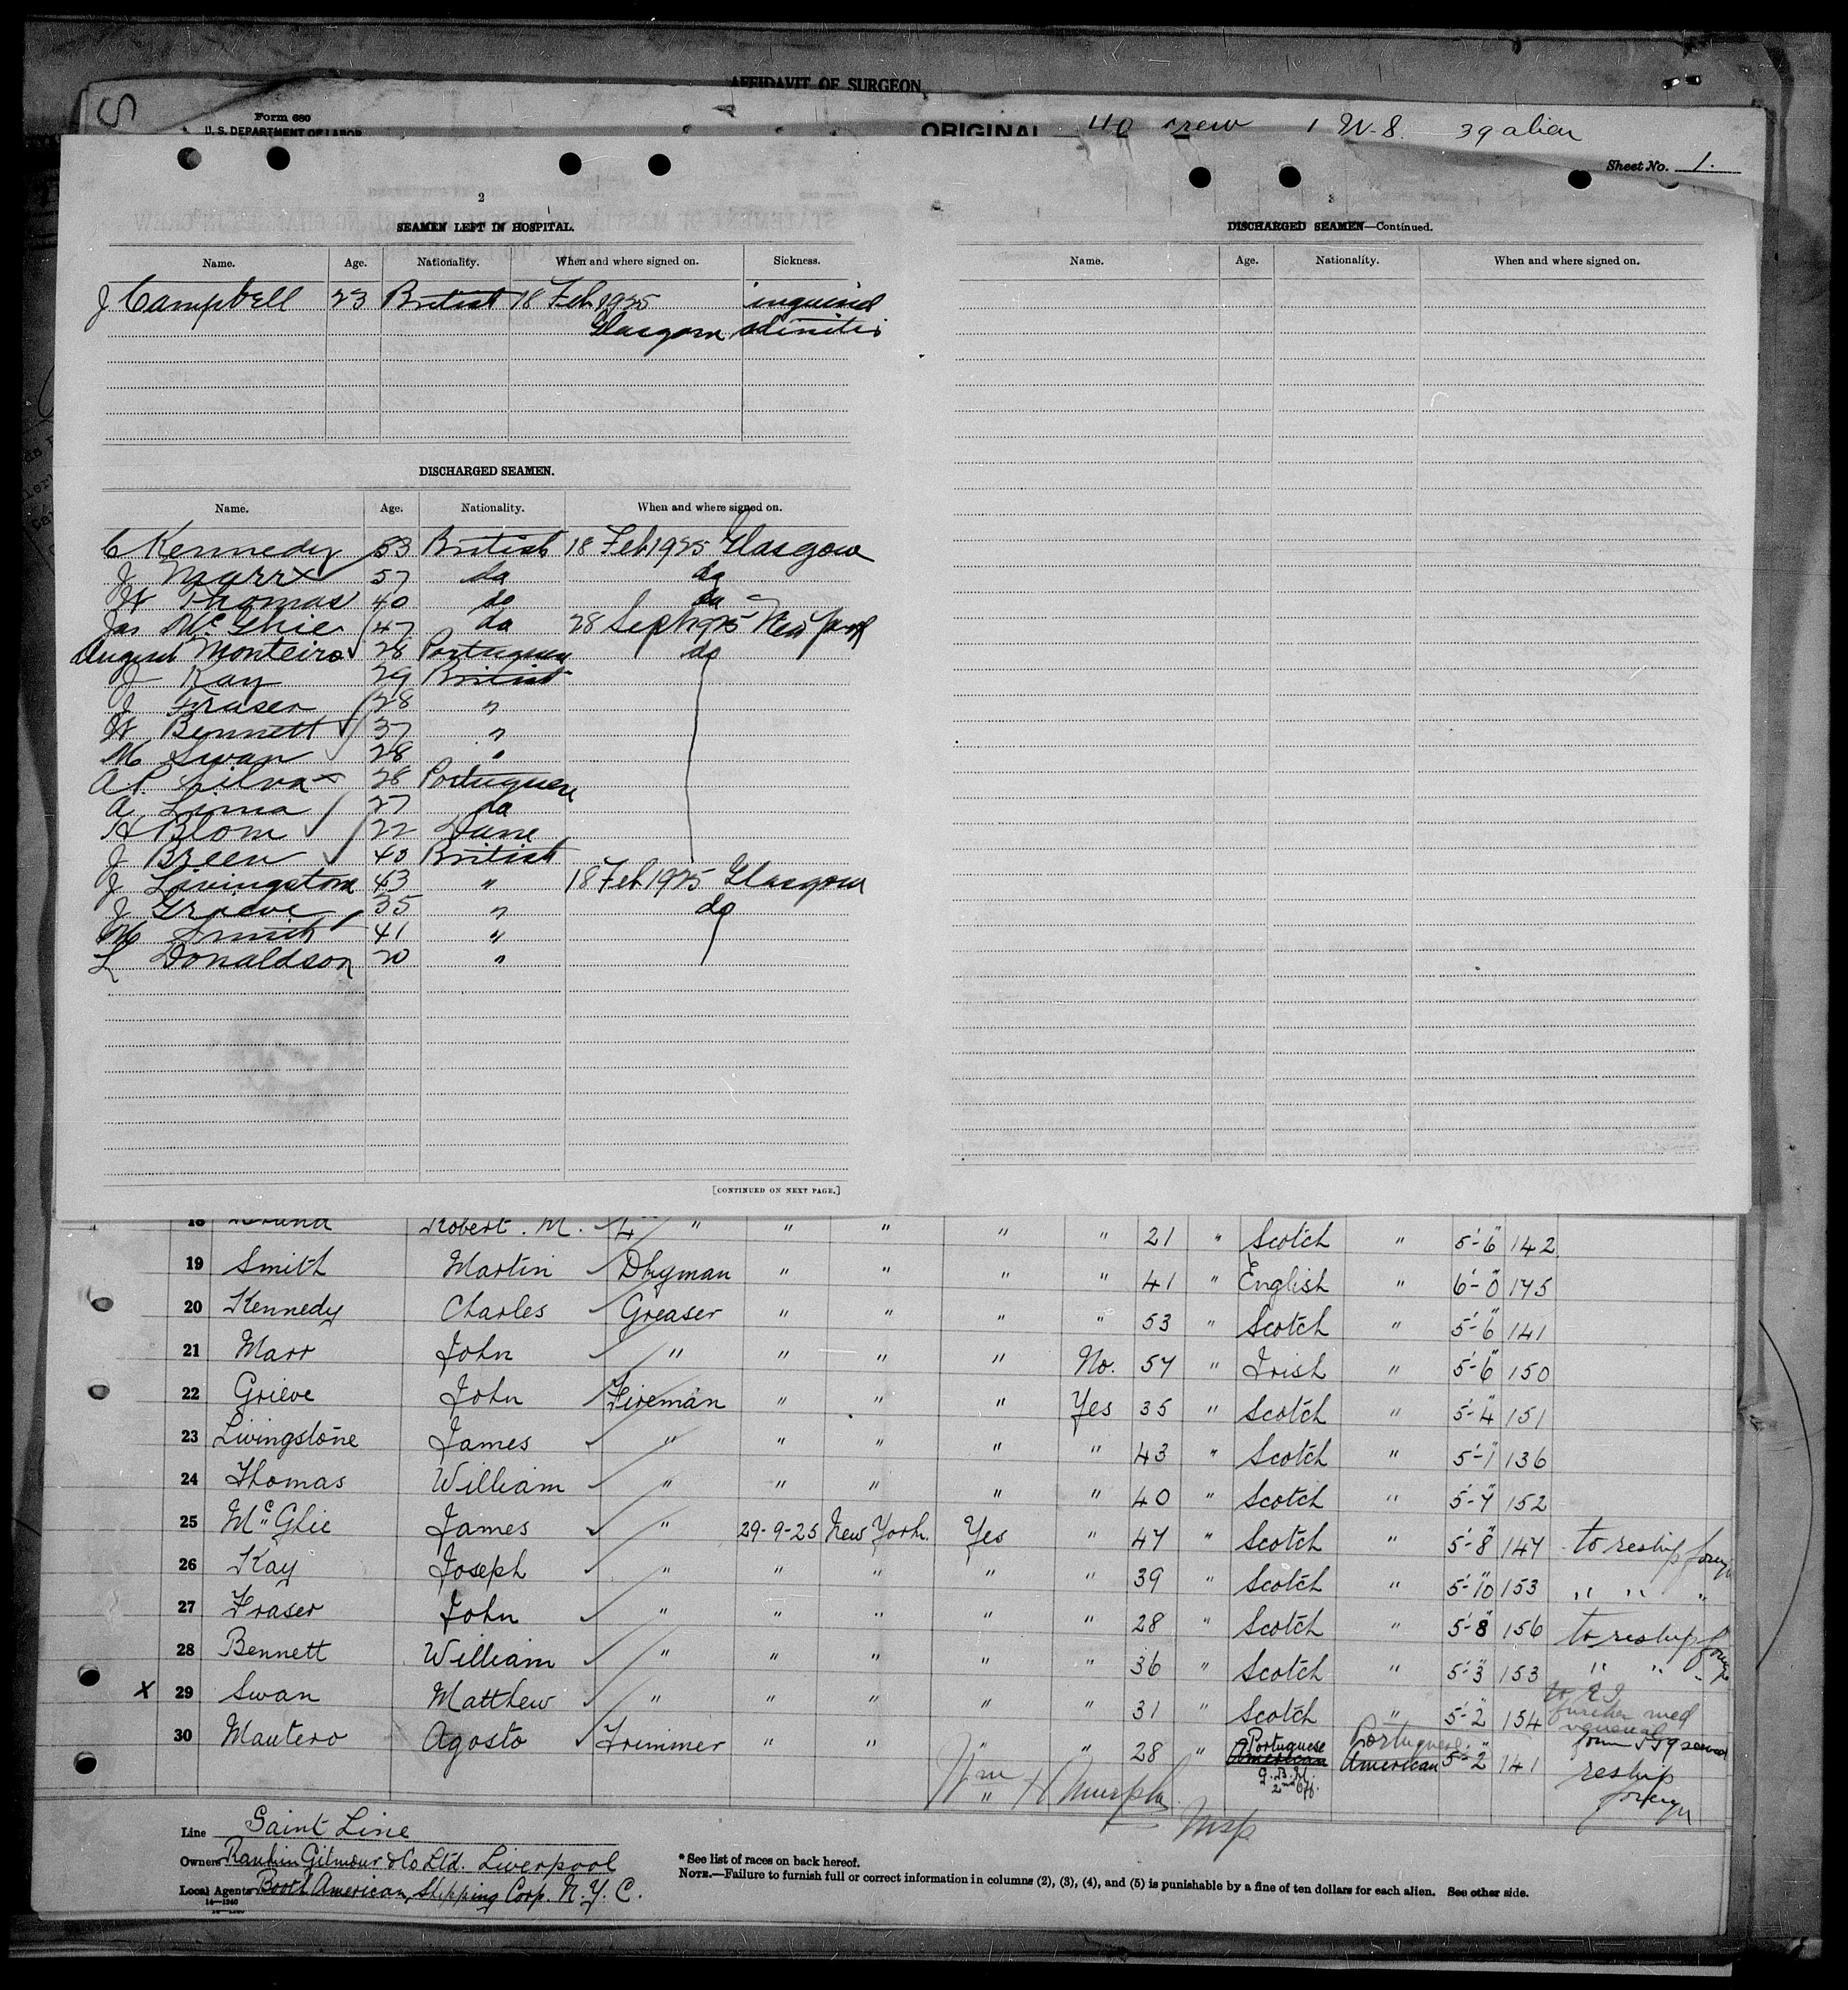 AFFIDAVIT OF SURGEON
Form 680
U. S. DEPARTMENT OF LABOR
ORIGINAL 40 crew 1 W.S. 39 alien
Sheet No. 1.
2
SEAMEN LEFT IN HOSPITAL.
Name. Age. Nationality. When and where signed on. Sickness.
J Campbell 23 British 18 Feb 1925 inguinal
Glasgow adinitis
DISCHARGED SEAMEN.
Name. Age. Nationality. When and where signed on.
C Kennedy 53 British 18 Feb 1925 Glasgow
J Marr x 57 do do
W Thomas 40 do do
Jas McGhie 47 do 28 Sept 1925 New York
August Monteiro 28 Portuguese do
J Kay 29 British
J Fraser 28 "
W Bennett 37 "
M Swan 28 "
A P. Silva x 28 Portuguese
A Lima 27 do
H Blom 22 Dane
J Breen 40 British
J Livingstone 43 " 18 Feb 1925 Glasgow
J Grieve 35 " do
M Smith 41 "
L Donaldson 20 "
[CONTINUED ON NEXT PAGE.]
3
DISCHARGED SEAMEN—Continued.
Name. Age. Nationality. When and where signed on.
18 Robert. M. 4 " " " " " 21 " Scotch " 5'-6" 142
19 Smith Martin Dkyman " " " " 41 " English " 6'-0" 175
20 Kennedy Charles Greaser " " " " 53 " Scotch " 5'-6" 141
21 Marr John " " " " No. 57 " Irish " 5'-6" 150
22 Grieve John Fireman " " " Yes 35 " Scotch " 5'-4" 151
23 Livingstone James " " " " " 43 " Scotch " 5'-7" 136
24 Thomas William " " " " " 40 " Scotch " 5'-7" 152
25 McGhie James " 29-9-25 New York. Yes " 47 " Scotch " 5'-8" 147 to reship foreign
26 Kay Joseph " " " " " 39 " Scotch " 5'-10" 153 " " "
27 Fraser John " " " " " 28 " Scotch " 5'-8" 156 to reship foreign
28 Bennett William " " " " " 36 " Scotch " 5'-3" 153 " " "
X 29 Swan Matthew " " " " " 31 " Scotch " 5'-2" 154 further med
30 Mautero Agosto Trimmer " " " " 28 " Portuguese American Portuguese American 5'-2" 141 reship foreign
2nd Off.
Wm H Murphy
Insp
Line Saint Line
Owners Rankin Gilmour & Co Ltd. Liverpool
Local Agents Booth American Shipping Corp. N. Y. C.
14—1240
* See list of races on back hereof.
NOTE.—Failure to furnish full or correct information in columns (2), (3), (4), and (5) is punishable by a fine of ten dollars for each alien. See other side.